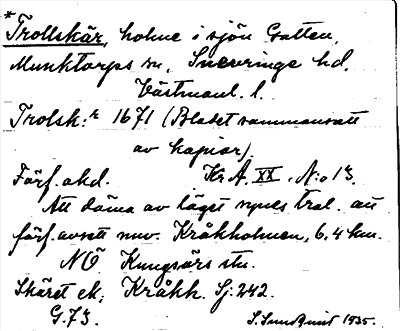 *Trollskär, holme i sjön Gatten,
Munktorps sn, Snevringe hd.
Västmanl. l.
Trolsk:r 1671 (Bladet sammansatt
av kopior)
Förf. okd. Kr.A. XX. N:o 13.
Att döma av läget synes trol. att
förf. avsett nuv. Kråkholmen, 6,4 km.
NÖ Kungsörs stn.
Skäret ek; Kråkh. Sj: 242.
G. 73. S. Sundquist 1935.